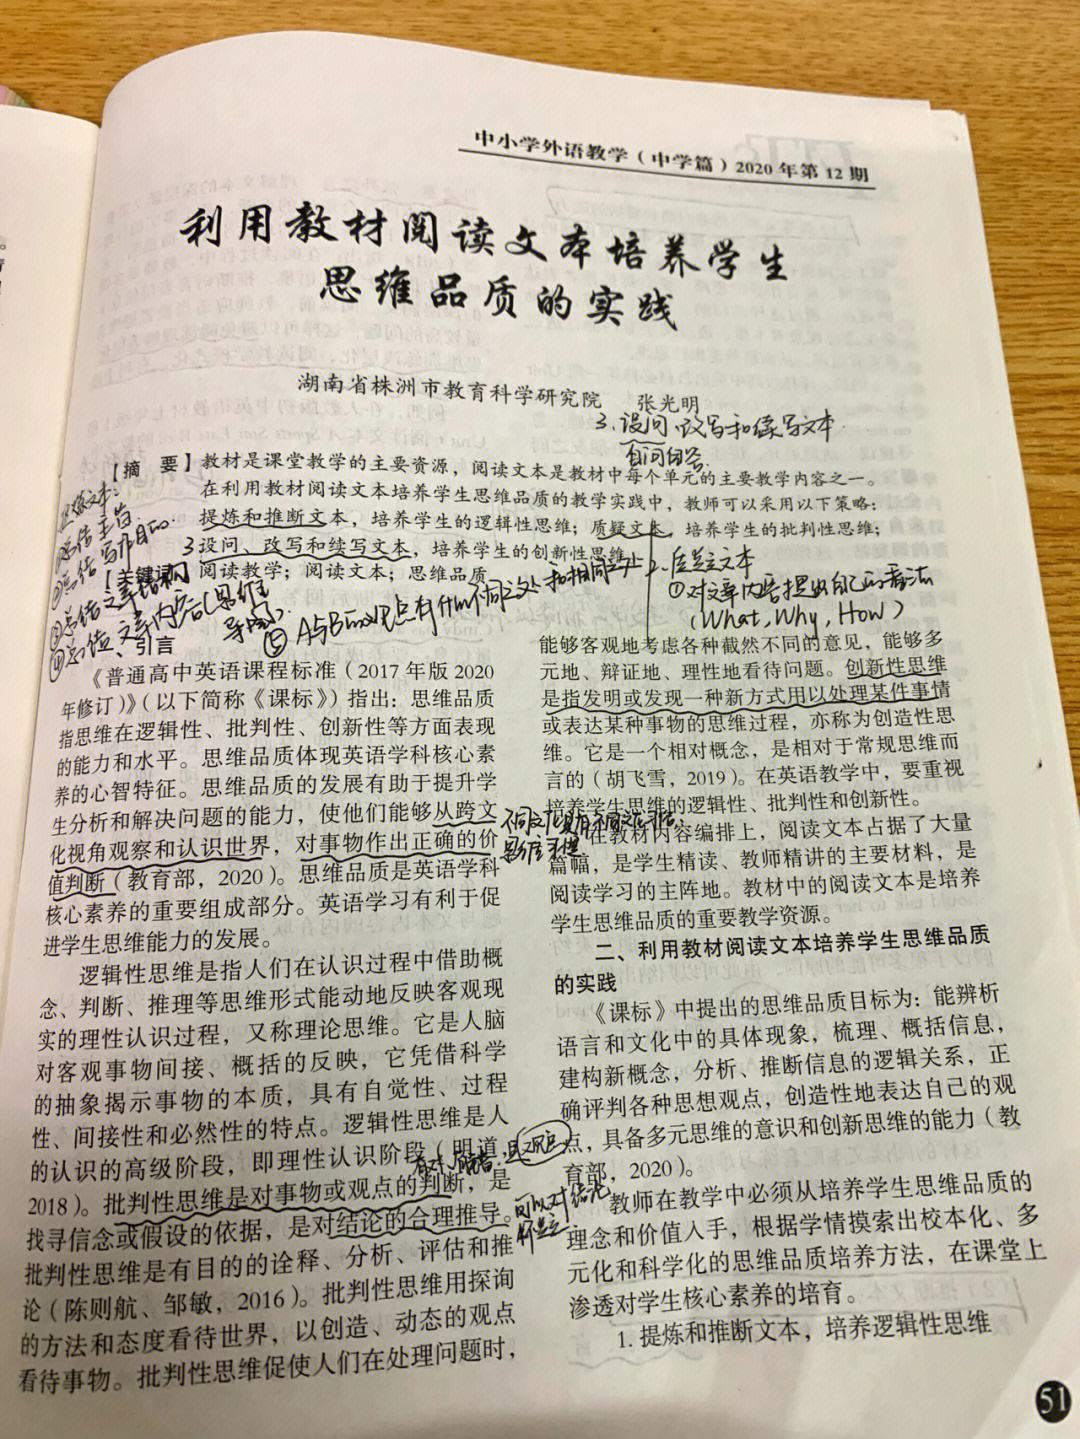 中小学外语教学（中学篇）2020年第12期
利用教材阅读文本培养学生
思维品质的实践
湖南省株洲市教育科学研究院　张光明
3.设问、改写和续写文本.
自问自答
【摘　要】教材是课堂教学的主要资源，阅读文本是教材中每个单元的主要教学内容之一。
在利用教材阅读文本培养学生思维品质的教学实践中，教师可以采用以下策略：
提炼和推断文本，培养学生的逻辑性思维；质疑文本，培养学生的批判性思维；
3设问、改写和续写文本，培养学生的创新性思维
【关键词
阅读教学；阅读文本；思维品质
①总结主旨
②总结写作目的
③总结文章结构
④总结文章内容（思维
导图）
⑤A与B的观点有什么不同之处和相同之处
2.质疑文本
①对文章内容提出自己的看法
（What, Why, How）
、引言
《普通高中英语课程标准（2017年版2020
年修订）》（以下简称《课标》）指出：思维品质
指思维在逻辑性、批判性、创新性等方面表现
的能力和水平。思维品质体现英语学科核心素
养的心智特征。思维品质的发展有助于提升学
生分析和解决问题的能力，使他们能够从跨文
化视角观察和认识世界，对事物作出正确的价
值判断（教育部，2020）。思维品质是英语学科
核心素养的重要组成部分。英语学习有利于促
进学生思维能力的发展。
逻辑性思维是指人们在认识过程中借助概
念、判断、推理等思维形式能动地反映客观现
实的理性认识过程，又称理论思维。它是人脑
对客观事物间接、概括的反映，它凭借科学
的抽象揭示事物的本质，具有自觉性、过程
性、间接性和必然性的特点。逻辑性思维是人
的认识的高级阶段，即理性认识阶段（明道，
2018）。批判性思维是对事物或观点的判断，是
找寻信念或假设的依据，是对结论的合理推导。
批判性思维是有目的的诠释、分析、评估和推
论（陈则航、邹敏，2016）。批判性思维用探询
的方法和态度看待世界，以创造、动态的观点
看待事物。批判性思维促使人们在处理问题时，
能够客观地考虑各种截然不同的意见，能够多
元地、辩证地、理性地看待问题。创新性思维
是指发明或发现一种新方式用以处理某件事情
或表达某种事物的思维过程，亦称为创造性思
维。它是一个相对概念，是相对于常规思维而
言的（胡飞雪，2019）。在英语教学中，要重视
培养学生思维的逻辑性、批判性和创新性。
在教材内容编排上，阅读文本占据了大量
篇幅，是学生精读、教师精讲的主要材料，是
阅读学习的主阵地。教材中的阅读文本是培养
学生思维品质的重要教学资源。
二、利用教材阅读文本培养学生思维品质
的实践
《课标》中提出的思维品质目标为：能辨析
语言和文化中的具体现象，梳理、概括信息，
建构新概念，分析、推断信息的逻辑关系，正
确评判各种思想观点，创造性地表达自己的观
点，具备多元思维的意识和创新思维的能力（教
育部，2020）。
可以对结论
质疑
教师在教学中必须从培养学生思维品质的
理念和价值入手，根据学情摸索出校本化、多
元化和科学化的思维品质培养方法，在课堂上
渗透对学生核心素养的培育。
1. 提炼和推断文本，培养逻辑性思维
51